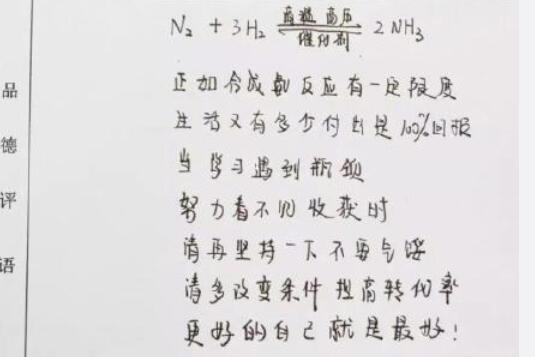 品德评语
N₂ + 3H₂ 高温 高压 催化剂 2NH₃
正如合成氨反应有一定限度
生活又有多少付出是100%回报
当学习遇到瓶颈
努力看不见收获时
请再坚持一下不要气馁
请多改变条件 提高转化率
更好的自己就是最好!